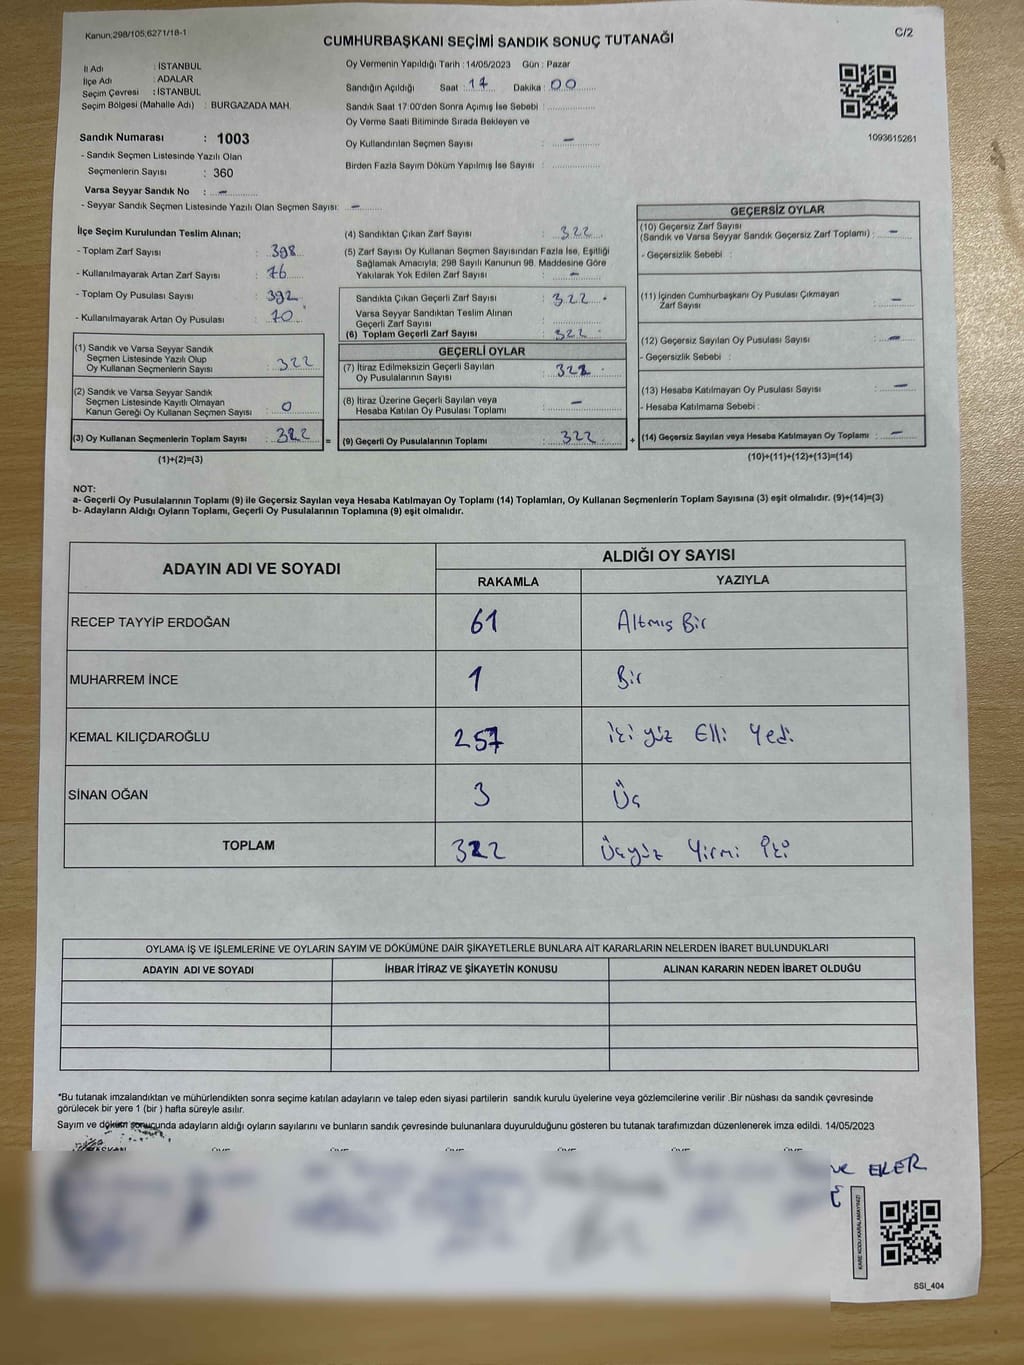 Kanun;298/105,6271/18-1
C/2
CUMHURBAŞKANI SEÇİMİ SANDIK SONUÇ TUTANAĞI
İl Adı : İSTANBUL
İlçe Adı : ADALAR
Seçim Çevresi : İSTANBUL
Seçim Bölgesi (Mahalle Adı) : BURGAZADA MAH.
Sandık Numarası : 1003
- Sandık Seçmen Listesinde Yazılı Olan
Seçmenlerin Sayısı : 360
Varsa Seyyar Sandık No : –
- Seyyar Sandık Seçmen Listesinde Yazılı Olan Seçmen Sayısı: –
Oy Vermenin Yapıldığı Tarih : 14/05/2023 Gün : Pazar
Sandığın Açıldığı Saat : 17 Dakika : 00
Sandık Saat 17:00'den Sonra Açımış İse Sebebi :
Oy Verme Saati Bitiminde Sırada Bekleyen ve
Oy Kullandırılan Seçmen Sayısı : –
Birden Fazla Sayım Döküm Yapılmış İse Sayısı :
1093615261
İlçe Seçim Kurulundan Teslim Alınan;
- Toplam Zarf Sayısı : 398
- Kullanılmayarak Artan Zarf Sayısı : 76
- Toplam Oy Pusulası Sayısı : 392
- Kullanılmayarak Artan Oy Pusulası : 70
(1) Sandık ve Varsa Seyyar Sandık
Seçmen Listesinde Yazılı Olup
Oy Kullanan Seçmenlerin Sayısı : 322
(2) Sandık ve Varsa Seyyar Sandık
Seçmen Listesinde Kayıtlı Olmayan
Kanun Gereği Oy Kullanan Seçmen Sayısı : 0
(3) Oy Kullanan Seçmenlerin Toplam Sayısı : 322 =
(1)+(2)=(3)
(4) Sandıktan Çıkan Zarf Sayısı : 322
(5) Zarf Sayısı Oy Kullanan Seçmen Sayısından Fazla İse, Eşitliği
Sağlamak Amacıyla; 298 Sayılı Kanunun 98. Maddesine Göre
Yakılarak Yok Edilen Zarf Sayısı : –
Sandıkta Çıkan Geçerli Zarf Sayısı : 322
Varsa Seyyar Sandıktan Teslim Alınan
Geçerli Zarf Sayısı :
(6) Toplam Geçerli Zarf Sayısı : 322
GEÇERLİ OYLAR
(7) İtiraz Edilmeksizin Geçerli Sayılan
Oy Pusulalarının Sayısı : 322
(8) İtiraz Üzerine Geçerli Sayılan veya
Hesaba Katılan Oy Pusulası Toplamı : –
(9) Geçerli Oy Pusulalarının Toplamı : 322 +
GEÇERSİZ OYLAR
(10) Geçersiz Zarf Sayısı
(Sandık ve Varsa Seyyar Sandık Geçersiz Zarf Toplamı) : –
- Geçersizlik Sebebi :
(11) İçinden Cumhurbaşkanı Oy Pusulası Çıkmayan
Zarf Sayısı : –
(12) Geçersiz Sayılan Oy Pusulası Sayısı : –
- Geçersizlik Sebebi :
(13) Hesaba Katılmayan Oy Pusulası Sayısı : –
- Hesaba Katılmama Sebebi :
(14) Geçersiz Sayılan veya Hesaba Katılmayan Oy Toplamı : –
(10)+(11)+(12)+(13)=(14)
NOT:
a- Geçerli Oy Pusulalarının Toplamı (9) ile Geçersiz Sayılan veya Hesaba Katılmayan Oy Toplamı (14) Toplamları, Oy Kullanan Seçmenlerin Toplam Sayısına (3) eşit olmalıdır. (9)+(14)=(3)
b- Adayların Aldığı Oyların Toplamı, Geçerli Oy Pusulalarının Toplamına (9) eşit olmalıdır.
ADAYIN ADI VE SOYADI ALDIĞI OY SAYISI
RAKAMLA YAZIYLA
RECEP TAYYİP ERDOĞAN 61 Altmış Bir
MUHARREM İNCE 1 Bir
KEMAL KILIÇDAROĞLU 257 iki yüz Elli Yedi
SİNAN OĞAN 3 Üç
TOPLAM 322 Üçyüz Yirmi İki
OYLAMA İŞ VE İŞLEMLERİNE VE OYLARIN SAYIM VE DÖKÜMÜNE DAİR ŞİKAYETLERLE BUNLARA AİT KARARLARIN NELERDEN İBARET BULUNDUKLARI
ADAYIN ADI VE SOYADI İHBAR İTİRAZ VE ŞİKAYETİN KONUSU ALINAN KARARIN NEDEN İBARET OLDUĞU
*Bu tutanak imzalandıktan ve mühürlendikten sonra seçime katılan adayların ve talep eden siyasi partilerin sandık kurulu üyelerine veya gözlemcilerine verilir .Bir nüshası da sandık çevresinde
görülecek bir yere 1 (bir ) hafta süreyle asılır.
Sayım ve döküm sonucunda adayların aldığı oyların sayılarını ve bunların sandık çevresinde bulunanlara duyurulduğunu gösteren bu tutanak tarafımızdan düzenlenerek imza edildi. 14/05/2023
EKER
KARE KODU KARALAMAYINIZ!
SSI_404